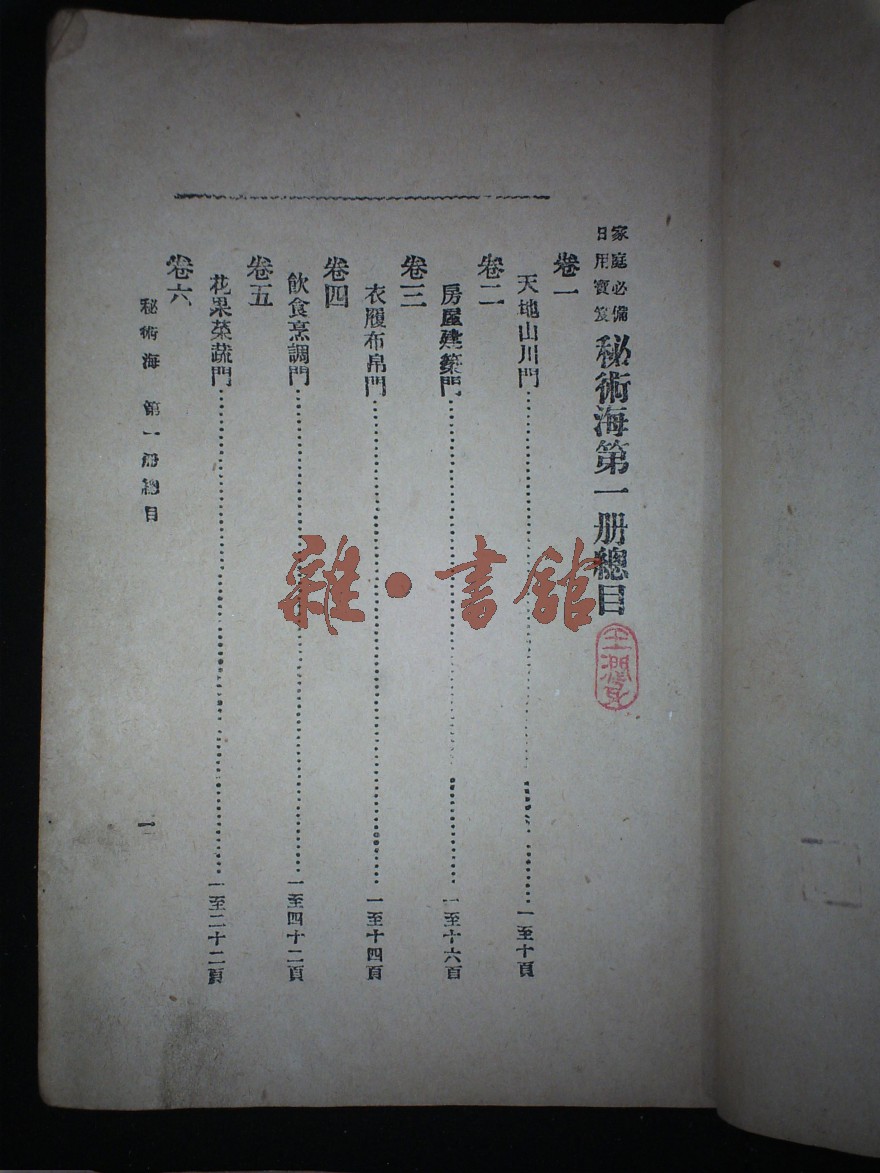 家庭必備
日用寶笈
秘術海第一册總目
卷一
天地山川門……一至十頁
卷二
房屋建築門……一至十六頁
卷三
衣履布帛門……一至十四頁
卷四
飲食烹調門……一至四十二頁
卷五
花果菜蔬門……一至二十二頁
卷六
秘術海 第一册總目
一
雜·書館